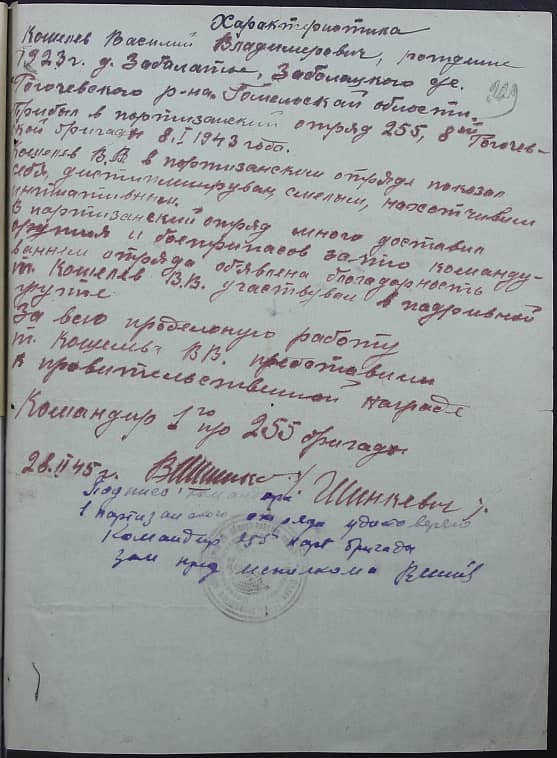 Характеристика
Кошелев Василий Владимерович, рождение
1923 г. д. Забалатье, Заболацкого с/с.
Рогочевского р-на. Гомельоской области.
Прибыл в портизанский отряд 255, 8ой Рогочев-
ской бригады 8.I 1943 года.
Кошелев В.В в портизанском отряде показал
себя, дистиплинирован, смелым, находчивим
инитиативным.
в портизанский отряд много доставил
оружия и боеприпасов за что командо-
ванием отряда обявлена благодарность
т. Кошелев В.В. участвувал в падривной
групте
За всю проделоную работу
т. Кошелев В.В. преоставили
к провительственной награде
Командир 1го по 255 бригады
28.II 45 г. /Шинкевич/.
Подпись командира
1 партизанского отряда удостоверяю
Командир 255 парт бригады
зам пред исполкома
229